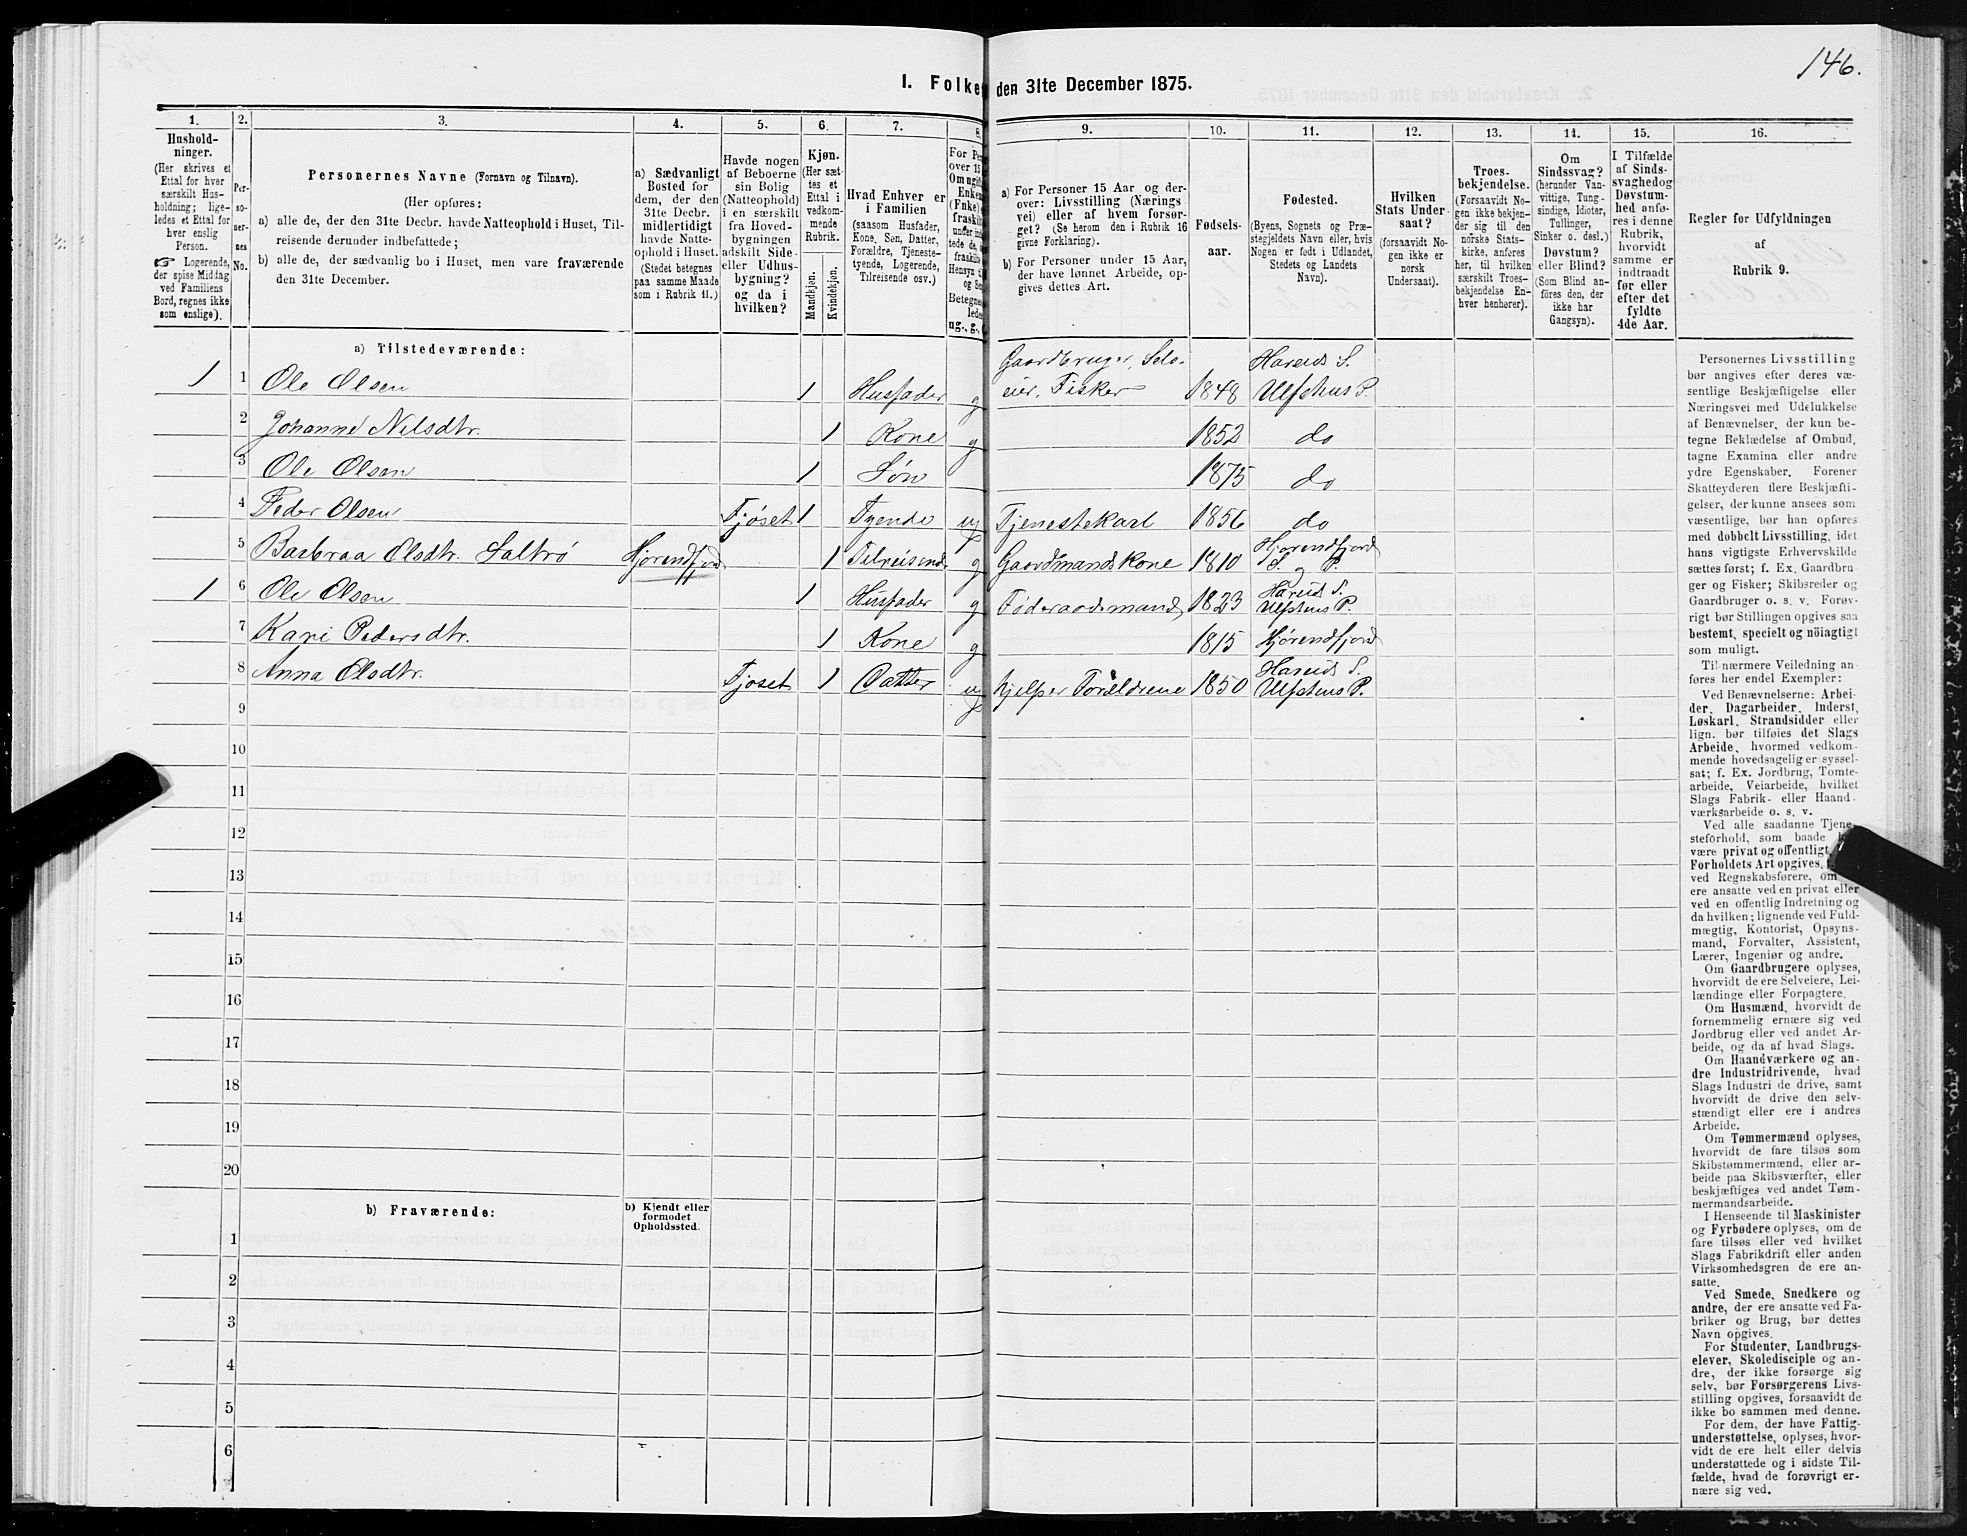 146.
I. Folke den 31te December 1875.
1. 2. 3. 4. 5. 6. 7. 8. 9. 10. 11. 12. 13. 14. 15. 16.
Hushold-
ninger.
(Her skrives et
Ettal for hver
særskilt Hus-
holdning; lige-
ledes et Ettal for
hver enslig
Person.
☞ Logerende,
der spise Middag
ved Familiens
Bord, regnes ikke
som enslige).
Per-
so-
ner-
nes
No.
Personernes Navne (Fornavn og Tilnavn).
(Her opføres:
a) alle de, der den 31te Decbr. havde Natteophold i Huset, Til-
reisende derunder indbefattede;
b) alle de, der sædvanlig bo i Huset, men vare fraværende
den 31te December.
a) Sædvanligt
Bosted for
dem, der den
31te Decbr.
midlertidigt
havde Natte-
ophold i Huset.
(Stedet betegnes
paa samme Maade
som i Rubrik 11.)
Havde nogen
af Beboerne
sin Bolig
(Natteophold)
i en særskilt
fra Hoved-
bygningen
adskilt Side-
eller Udhus-
bygning?
og da i
hvilken?
Kjøn.
(Her sæt-
tes et
Ettal i
vedkom-
mende
Rubrik.
Mandkjøn.
Kvindekjøn.
Hvad Enhver er
i Familien
(saasom Husfader,
Kone, Søn, Datter,
Forældre, Tjeneste-
tyende, Logerende,
Tilreisende osv.)
For Pe
over 15
Om ugift
Enke
(Enke)
fraski
ug., g.,
a) For Personer 15 Aar og der-
over: Livsstilling (Nærings
vei) eller af hvem forsør-
get? (Se herom den i Rubrik 16
givne Forklaring).
b) For Personer under 15 Aar,
der have lønnet Arbeide, op-
gives dettes Art.
Fødsels-
aar.
Fødested.
(Byens, Sognets og Præ-
stegjeldets Navn eller, hvis
Nogen er født i Udlandet,
Stedets og Landets
Navn).
Hvilken
Stats Under-
saat?
(forsaavidt No-
gen ikke er
norsk
Undersaat).
Troes-
bekjendelse.
(Forsaavidt No-
gen ikke bekjen-
der sig til den
norske Stats-
kirke, anføres
her, til hvilken
særskilt Troes-
bekjendelse En-
hver henhører).
Om
Sindssvag?
(herunder Van-
vittige, Tung-
sindige, Idioter,
Tullinger,
Sinker o. desl.)
Døvstum?
eller Blind?
(Som Blind an-
føres den, der
ikke har
Gangsyn).
I Tilfælde
af Sinds-
svaghed og
Døvstum-
hed anfø-
res i denne
Rubrik,
hvorvidt
samme er
indtraadt
før eller
efter det
fyldte
4de Aar.
Regler for Udfyldningen
af
Rubrik 9.
a) Tilstedeværende:
1 1 Ole Olsen 1 Husfader g Gaardbruger, Selv-
eier, Fisker 1848 Hareids S.
Ulfstens P.
2 Johanne Nilsdtr. 1 Kone g 1852 do
3 Ole Olsen 1 Søn 1875 do
4 Peder Olsen Fjøset 1 Tyende ug Tjenestekarl 1856 do
5 Barbraa Olsdtr. Saltrø Hjørendfjord 1 Tilreisende g Gaardmandskone 1810 Hjørendfjord
S. og P.
1 6 Ole Olsen 1 Husfader g Føderaadsmand 1823 Hareid S.
Ulfstens P.
7 Kari Pedersdtr. 1 Kone g 1815 Hjørendfjord
8 Anna Olsdtr. Fjøset 1 Datter ug hjelper Forældrene 1850 Hareids S.
Ulfstens P.
9
10
11
12
13
14
15
16
17
18
19
20
b) Fraværende:
b) Kjendt eller
formodet
Opholdssted.
1
2
3
4
5
6
Personernes Livsstilling
bør angives efter deres væ-
sentlige Beskjæftigelse eller
Næringsvei med Udelukkelse
af Benævnelser, der kun be-
tegne Beklædelse af Ombud,
tagne Examina eller andre
ydre Egenskaber. Forener
Skatteyderen flere Beskjæfti-
gelser, der kunne ansees som
væsentlige, bør han opføres
med dobbelt Livsstilling, idet
hans vigtigste Erhvervskilde
sættes først; f. Ex. Gaardbru-
ger og Fisker; Skibsreder og
Gaardbruger o. s. v. Forøv-
rigt bør Stillingen opgives saa
bestemt, specielt og nöiagtigt
som muligt.
Til nærmere Veiledning an-
føres her endel Exempler:
Ved Benævnelserne: Arbei-
der, Dagarbeider, Inderst,
Løskarl, Strandsidder eller
lign. bør tilføies det Slags
Arbeide, hvormed vedkom-
mende hovedsagelig er syssel-
sat; f. Ex. Jordbrug, Tomte-
arbeide, Veiarbeide, hvilket
Slags Fabrik- eller Haand-
værksarbeide o. s. v.
Ved alle saadanne Tjene-
steforhold, som baade
være privat og offentligt,
Forholdets Art opgives,
ved Regnskabsførere, om
ere ansatte ved en privat eller
ved en offentlig Indretning og
da hvilken; lignende ved Fuld-
mægtig, Kontorist, Opsyns-
mand, Forvalter, Assistent,
Lærer, Ingeniør og andre.
Om Gaardbrugere oplyses,
hvorvidt de ere Selveiere, Lei-
lændinge eller Forpagtere.
Om Husmænd, hvorvidt de
fornemmelig ernære sig ved
Jordbrug eller ved andet Ar-
beide, og da af hvad Slags.
Om Haandværkere og an-
dre Industridrivende, hvad
Slags Industri de drive, samt
hvorvidt de drive den selv-
stændigt eller ere i andres
Arbeide.
Om Tømmermænd oplyses,
hvorvidt de fare tilsøs som
Skibstømmermænd, eller ar-
beide paa Skibsværfter, eller
beskjæftiges ved andet Tøm-
mermandsarbeide.
I Henseende til Maskinister
og Fyrbødere oplyses, om de
fare tilsøs eller ved hvilket
Slags Fabrikdrift eller anden
Virksomhedsgren de ere an-
satte.
Ved Smede, Snedkere og
andre, der ere ansatte ved Fa-
briker og Brug, bør dettes
Navn opgives.
For Studenter, Landbrugs-
elever, Skoledisciple og an-
dre, der ikke forsørge sig
selv, bør Forsørgerens Livs-
stilling opgives, forsaavidt de
ikke bo sammen med denne.
For dem, der have Fattig-
understøttelse, oplyses, hvor-
vidt de ere helt eller delvis
understøttede og i sidste Til-
fælde, hvad de forøvrigt er-
nære sig ved.